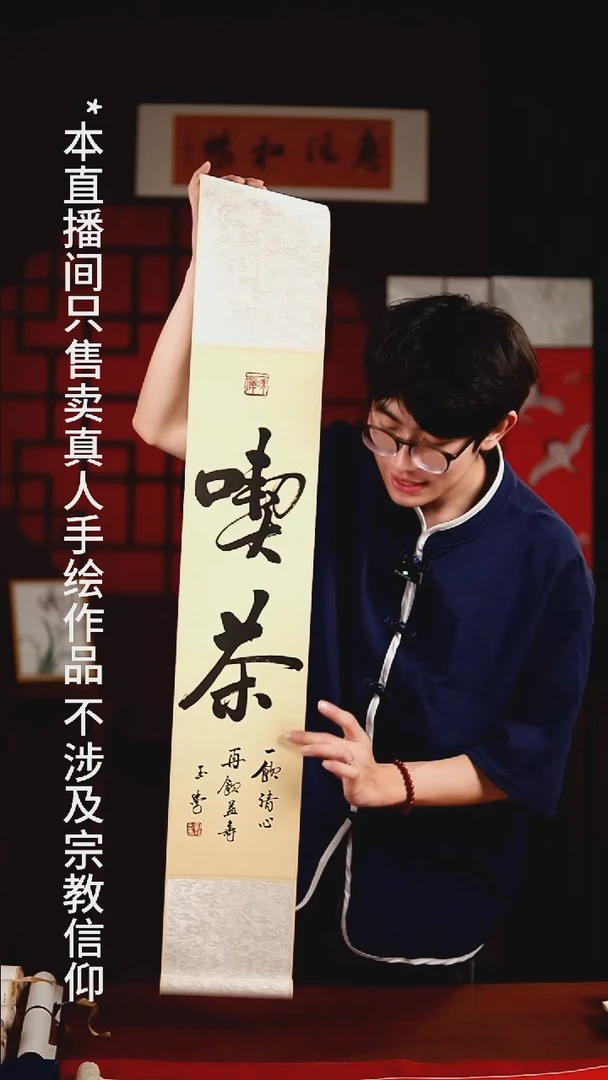 *本直播间只售卖真人手绘作品 不涉及宗教信仰
惠风和畅
喫茶
一飲清心
再飲益寿